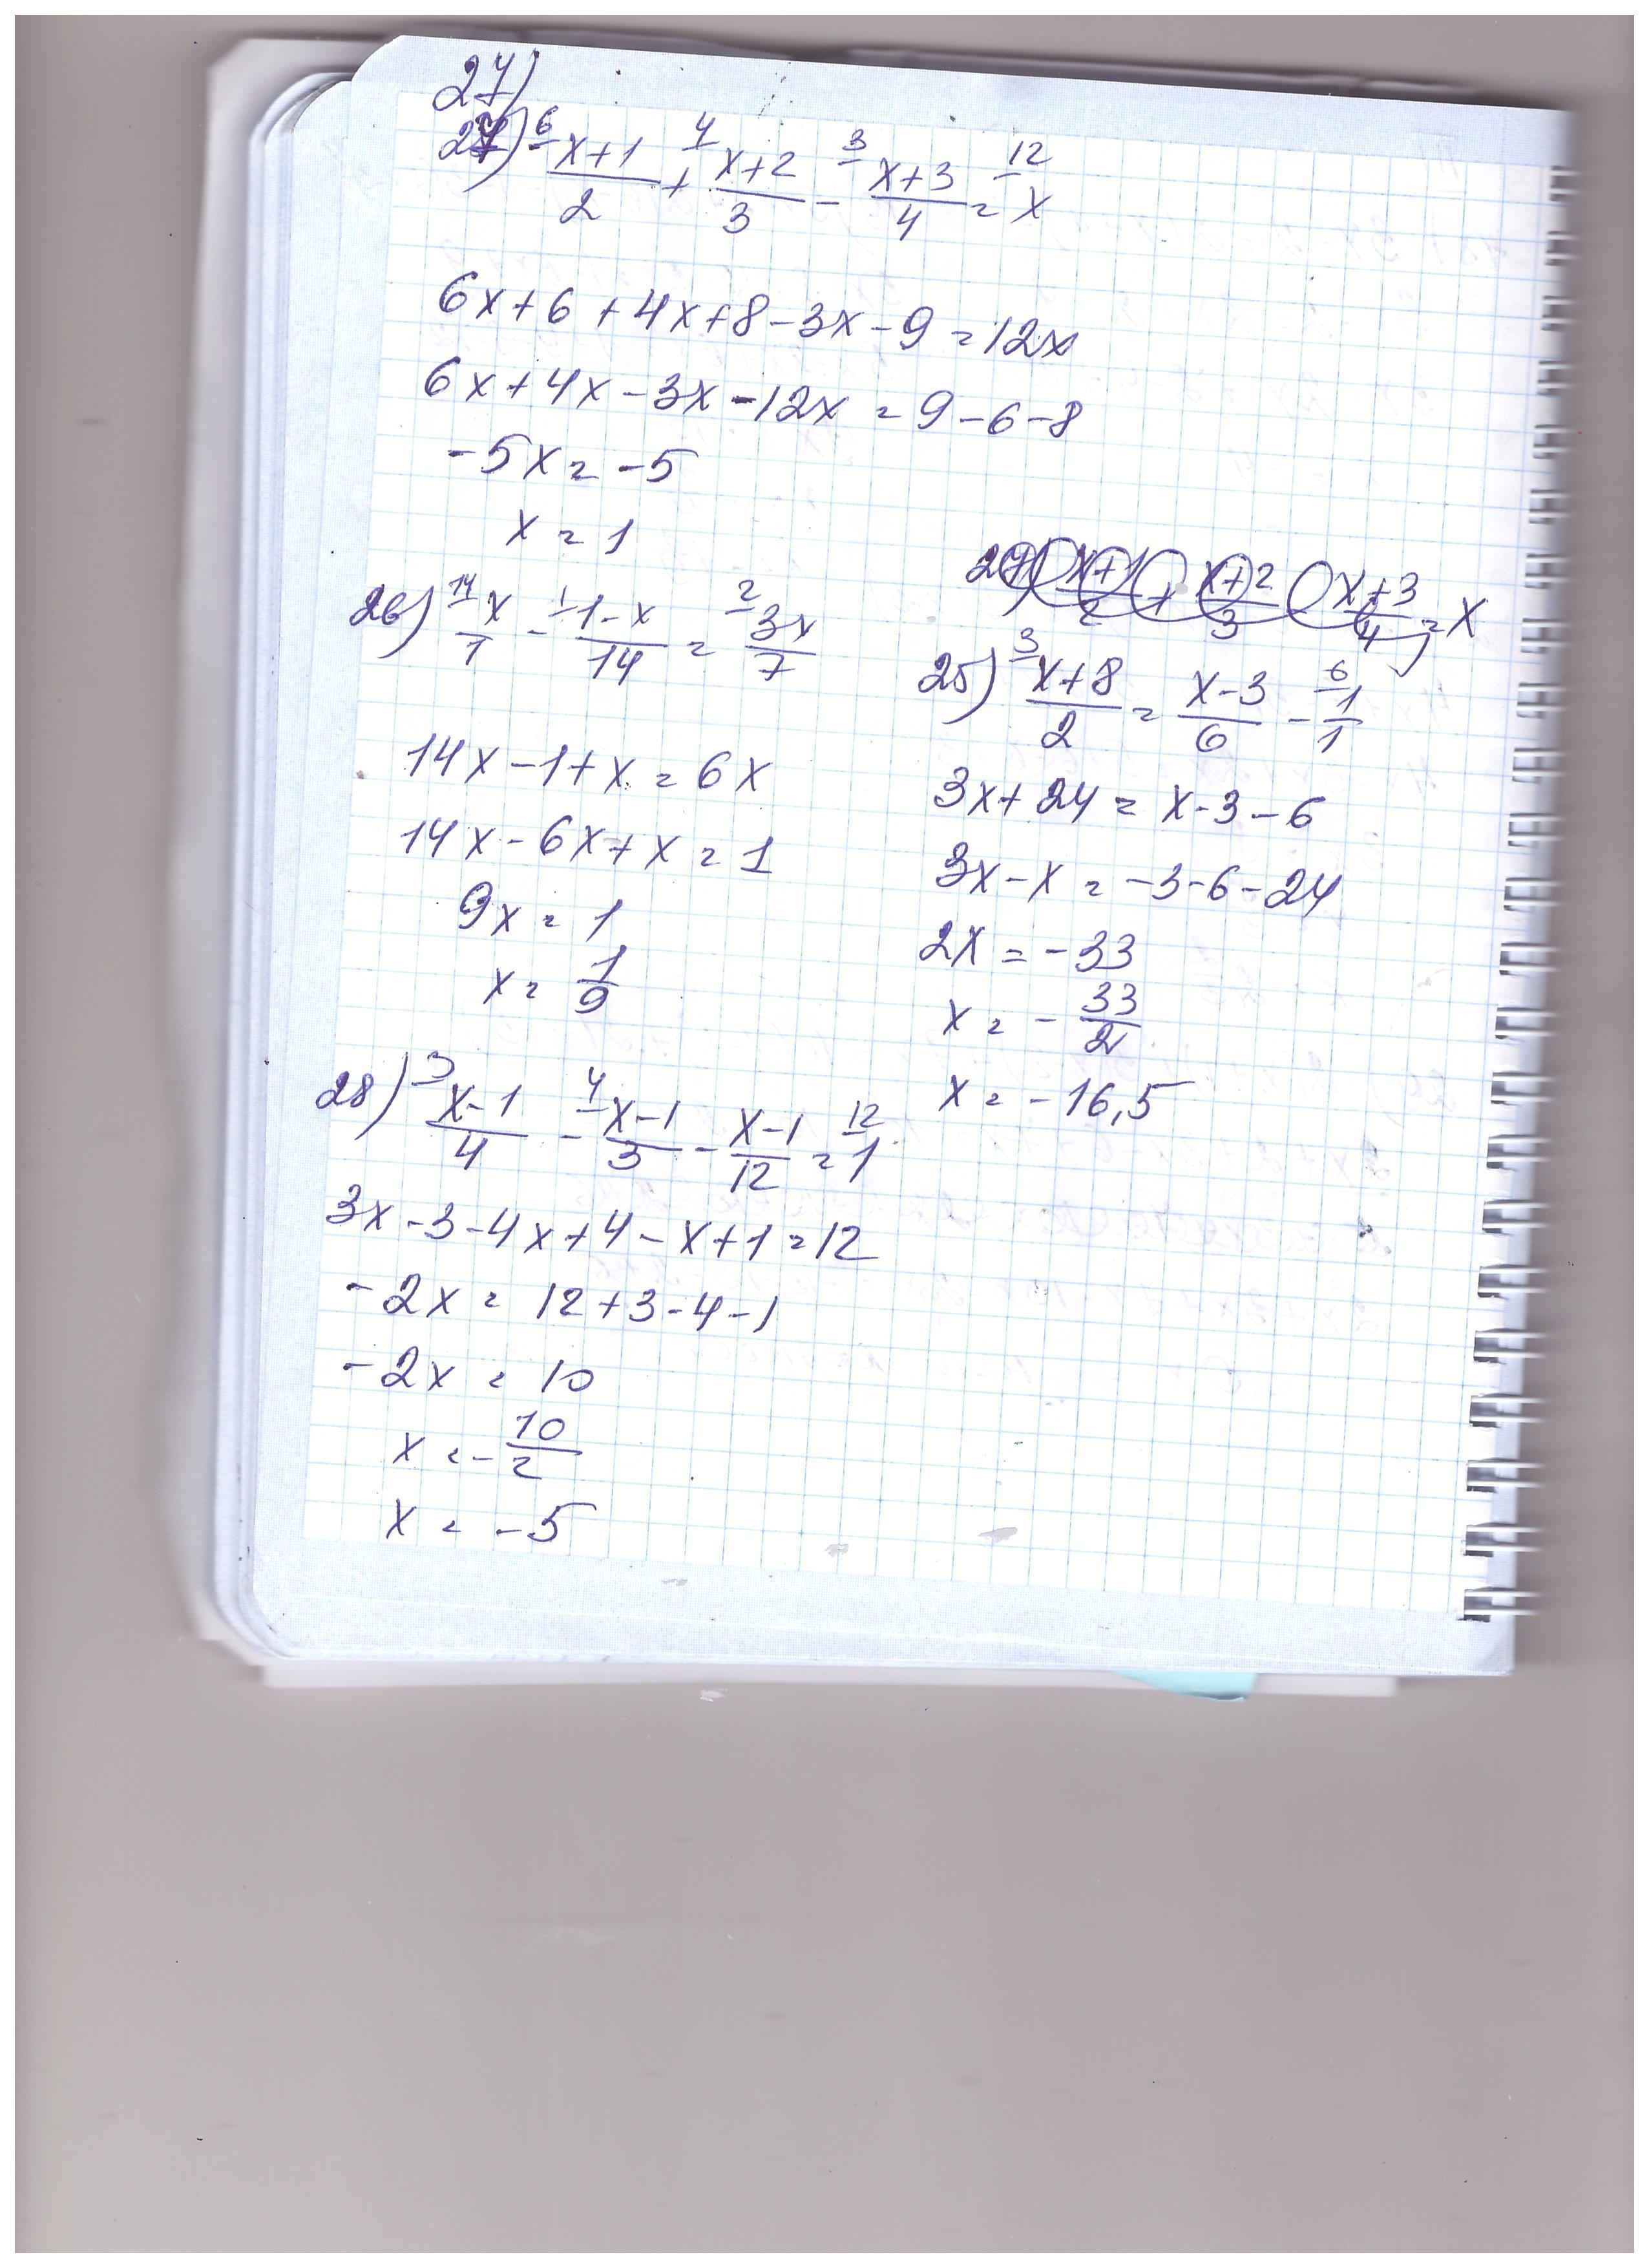 27)
27) 6 x+1/2 + 4 x+2/3 - 3 x+3/4 = 12 x
6x+6+4x+8-3x-9=12x
6x+4x-3x-12x=9-6-8
-5x=-5
x=1
26) 14 x/1 - 1 1-x/14 = 2 3x/7
14x-1+x=6x
14x-6x+x=1
9x=1
x=1/9
28) 3 x-1/4 - 4 x-1/3 - x-1/12 = 12 1
3x-3-4x+4-x+1=12
-2x=12+3-4-1
-2x=10
x=-10/2
x=-5
27) x+1/2 + x+2/3 - x+3/4 = x
25) 3 x+8/2 = x-3/6 - 6 1/1
3x+24=x-3-6
3x-x=-3-6-24
2x=-33
x=-33/2
x=-16,5